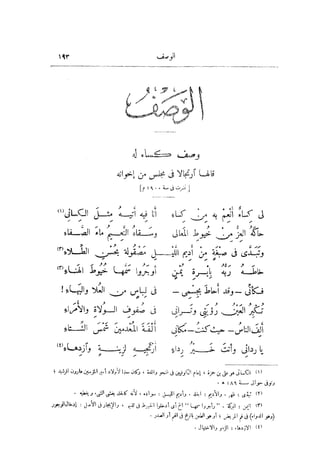 الوصف ١٩٣
الوصف
وصف كساء له
قالها ارتجالا في مجلس من إخوانه
[ نشرت في سنة ١٩٠٠ م ]
لى كساء أنعم به من كساء أنا فيه أتيه مثل الكسائى (١)
حاكه العز من خيوط المعالى وسقاه النعيم ماء الصفاء
وتبدى في صبغة من أديم الليل مصقولة بحسن الطلاء (٢)
خاطه ربه بإبرة يمن أوجروا سمها خيوط الهناء (٣)
فكأنى ـ وقد أحاط بجسمى ـ في لباس من العلا والبهاء !
تكبر العين رؤيتى وترانى في صفوف الولاة والأمراء
ألف الناس ـ حيث كنت ـ مكانى ألفة المعدمين شمس الشتاء
يا ردائى وأنت خير رداء أرتجيه لزينة وازدهاء (٤)
(١) الكسائى هو على بن حمزة ؛ إمام الكوفيين في النحو واللغة ، وكان معلما لأولاد أمير المؤمنين هارون الرشيد ؛
وتوفى حوالى سنة ١٨٩ هـ .
(٢) تبدى : ظهر . والأديم : الجلد . وأديم الليل : سواده ، لأنه كالجلد يغشى الشىء ويغطيه .
(٣) اليمن : البركة . "وأوجروا سمها" أى أدخلوا الخيوط في ثقبه . والإيجار في الأصل : إدخال الوجور
(وهو الدواء) في فم المريض ؛ أوهو الطعن بالرمح في الفم أو الصدر .
(٤) الازدهاء : الزهو والاختيال .